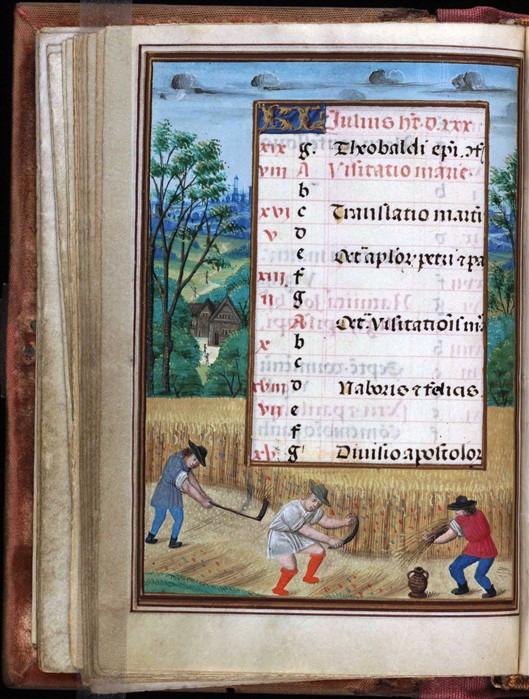 KL Iulius ht̄ d. xxx
xix g. Theobaldi epi.
viii A Visitatio marie
b
xvi c Translatio marti
v d
e Oct aplor petri
xiii f
ii g
A Oct. Visitationis
x b
c
xviii d Naboris ⁊ felicis
vii e
f
g Divisio apostolor